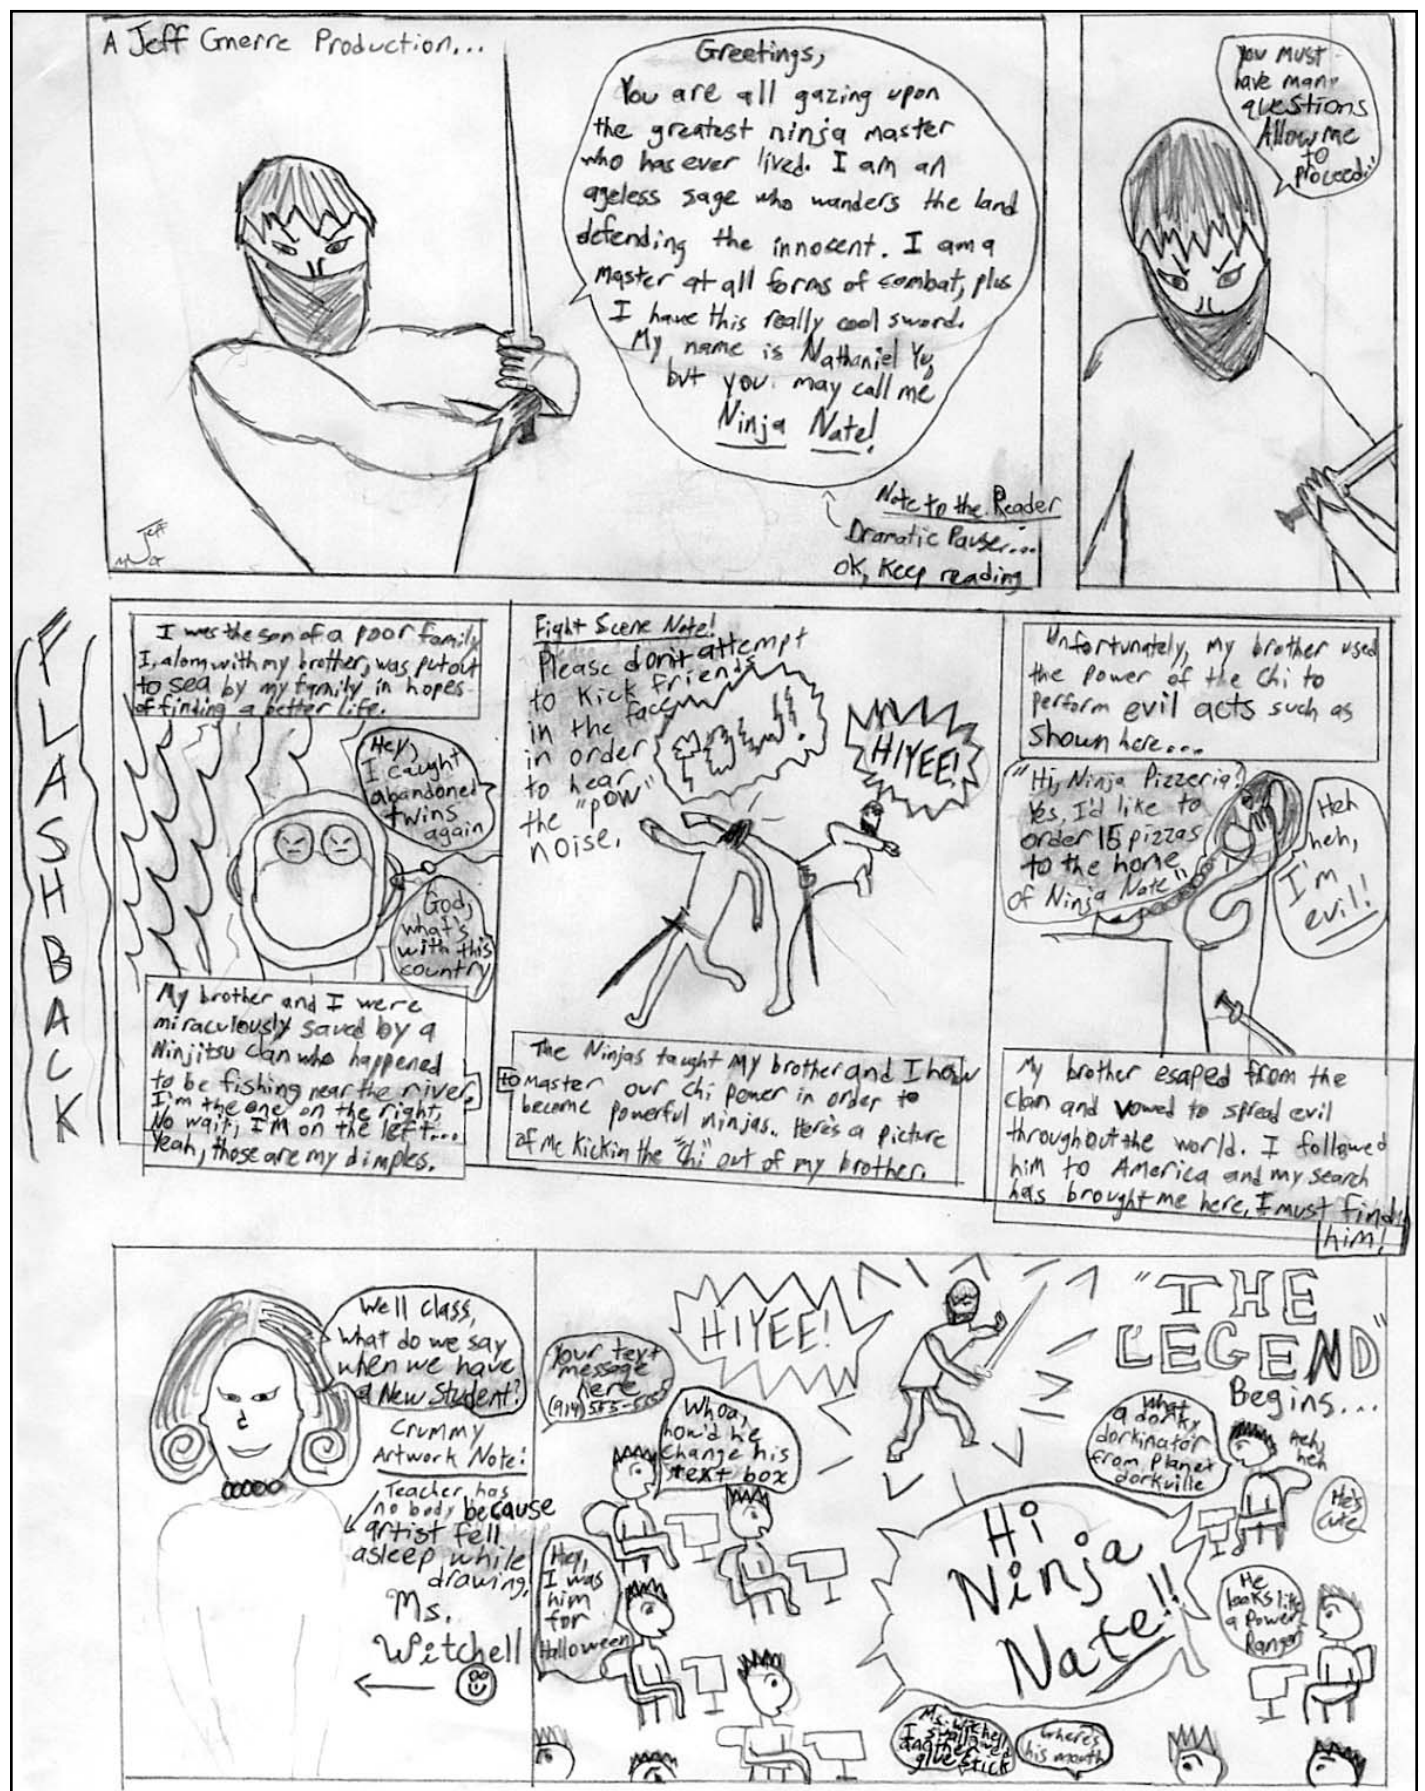 A Jeff Gnerre Production...
Greetings,
You are all gazing upon
the greatest ninja master
who has ever lived. I am an
ageless sage who wanders the land
defending the innocent. I am a
Master at all forms of combat, plus
I have this really cool sword.
My name is Nathaniel Yu,
but you may call me
Ninja Nate!
Note to the Reader
Dramatic Pause....
OK, Keep reading
Jeff
You must
have many
questions
Allow me
to
proceed...
FLASHBACK
I was the son of a poor family
I, along with my brother, was put out
to sea by my family in hopes
of finding a better life.
Hey,
I caught
abandoned
twins
again
God,
what's
with this
country
My brother and I were
miraculously saved by a
Ninjitsu clan who happened
to be fishing near the river.
I'm the one on the right,
No wait, I'm on the left...
Yeah, those are my dimples.
Fight Scene Note!
Please don't attempt
to kick friends
in the face
in order
to hear
the "pow"
noise.
HIYEE!
The Ninjas taught my brother and I how
to Master our Chi power in order to
become powerful ninjas.. Here's a picture
of me kickin the "Chi" out of my brother.
Unfortunately, my brother used
the power of the Chi to
perform evil acts such as
shown here....
"Hi, Ninja Pizzeria?
Yes, I'd like to
order 15 pizzas
to the home
of Ninja Nate"
Heh
heh,
I'm
evil!
My brother esaped from the
clan and vowed to spread evil
throughout the world. I followed
him to America and my search
has brought me here. I must find
him!
Well class,
what do we say
when we have
a New Student?
Crummy
Artwork Note:
Teacher has
no body because
artist fell
asleep while
drawing.
Ms.
Witchell
HIYEE!
"THE
LEGEND"
Begins...
Your text
message
here
(914) 555-5555
Whoa,
how'd he
change his
text box
What
a dorky
dorkinator
from planet
dorkville
Heh,
heh
He's
cute
Hi
Ninja
Nate!!
Hey,
I was
him
for
Halloween
He
looks like
a Power
Ranger
Ms. Witchell
I swallowed
another
glue stick
Where's
his mouth